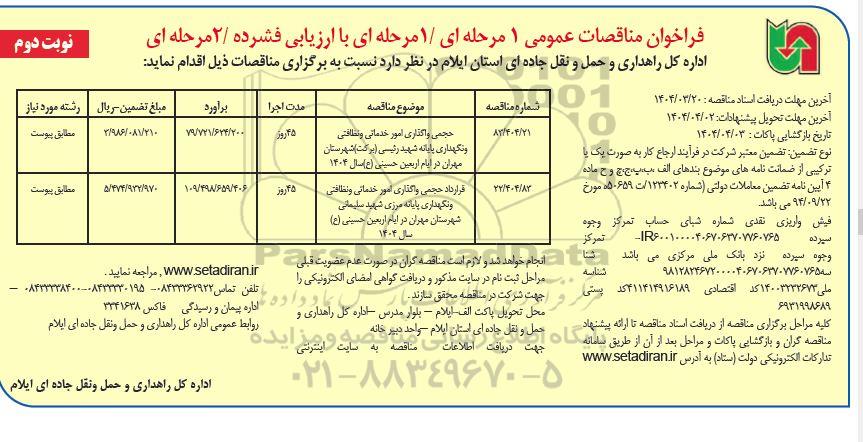 فراخوان مناقصات عمومی ۱ مرحله ای /۱مرحله ای با ارزیابی فشرده /۲مرحله ای
نوبت دوم
اداره کل راهداری و حمل و نقل جاده ای استان ایلام در نظر دارد نسبت به برگزاری مناقصات ذیل اقدام نماید:
آخرین مهلت دریافت اسناد مناقصه : ۱۴۰۴/۰۳/۲۰
آخرین مهلت تحویل پیشنهادات: ۱۴۰۴/۰۴/۰۲
تاریخ بازگشایی پاکات : ۱۴۰۴/۰۴/۰۳
نوع تضمین: تضمین معتبر شرکت در فرآیند ارجاع کار به صورت یک یا
ترکیبی از ضمانت نامه های موضوع بندهای الف ،ب،پ،ج،چ و ح ماده
۴ آیین نامه تضمین معاملات دولتی (شماره ۱۲۳۴۰۲/ت ۵۰۶۵۹ه مورخ
۹۴/۰۹/۲۲ می باشد.
فیش واریزی نقدی شماره شبای حساب تمرکز وجوه
سپرده IR۶۰۰۱۰۰۰۰۴۰۶۷۰۶۳۷۰۷۷۶۰۷۶۵- تمرکز
وجوه سپرده نزد بانک ملی مرکزی می باشد شنا
سه۹۸۱۲۸۲۴۶۷۲۰۰۰۰۴۰۶۷۰۶۳۷۰۷۷۶۰۷۶۵ شناسه
ملی۱۴۰۰۳۲۳۲۶۷۳کد اقتصادی ۴۱۱۴۱۴۹۱۶۱۸۹کد پستی
۶۹۳۱۹۹۸۶۸۹
کلیه مراحل برگزاری مناقصه از دریافت اسناد مناقصه تا ارائه پیشنهاد
مناقصه گران و بازگشایی پاکات و مراحل بعد از آن از طریق سامانه
تدارکات الکترونیکی دولت (ستاد) به آدرس www.setadiran.ir
شماره مناقصه موضوع مناقصه مدت اجرا برآورد مبلغ تضمین-ریال رشته مورد نیاز
۸۲/۴۰۴/۲۱ حجمی واگذاری امور خدماتی ونظافتی ۴۵روز ۷۹/۷۲۱/۶۲۴/۲۰۰ ۳/۹۸۶/۰۸۱/۲۱۰ مطابق پیوست
ونگهداری پایانه شهید رئیسی (برکت)شهرستان
مهران در ایام اربعین حسینی (ع)سال ۱۴۰۴
۲۲/۴۰۴/۸۳ قرارداد حجمی واگذاری امور خدماتی ونظافتی ۴۵روز ۱۰۹/۴۹۸/۶۵۹/۴۰۶ ۵/۴۷۴/۹۳۲/۹۷۰ مطابق پیوست
ونگهداری پایانه مرزی شهید سلیمانی
شهرستان مهران در ایام اربعین حسینی (ع)
سال ۱۴۰۴
انجام خواهد شد و لازم است مناقصه گران در صورت عدم عضویت قبلی
مراحل ثبت نام در سایت مذکور و دریافت گواهی امضای الکترونیکی را
جهت شرکت در مناقصه محقق سازند .
محل تحویل پاکت الف-ایلام – بلوار مدرس –اداره کل راهداری و
حمل و نقل جاده ای استان ایلام –واحد دبیر خانه
جهت دریافت اطلاعات مناقصه به سایت اینترنتی
www.setadiran.ir , مراجعه نمایید .
تلفن تماس۰۸۴۳۳۳۶۲۹۲۲- ۰۸۴۳۳۳۳۰۱۹۵-۰۸۴۳۳۳۳۸۴۰۰ –
اداره پیمان و رسیدگی فاکس ۳۳۴۱۶۳۸
روابط عمومی اداره کل راهداری و حمل ونقل جاده ای ایلام
اداره کل راهداری و حمل ونقل جاده ای ایلام
ParsNamadData
۰۲۱-۸۸۳۴۹۶۷۰-۵